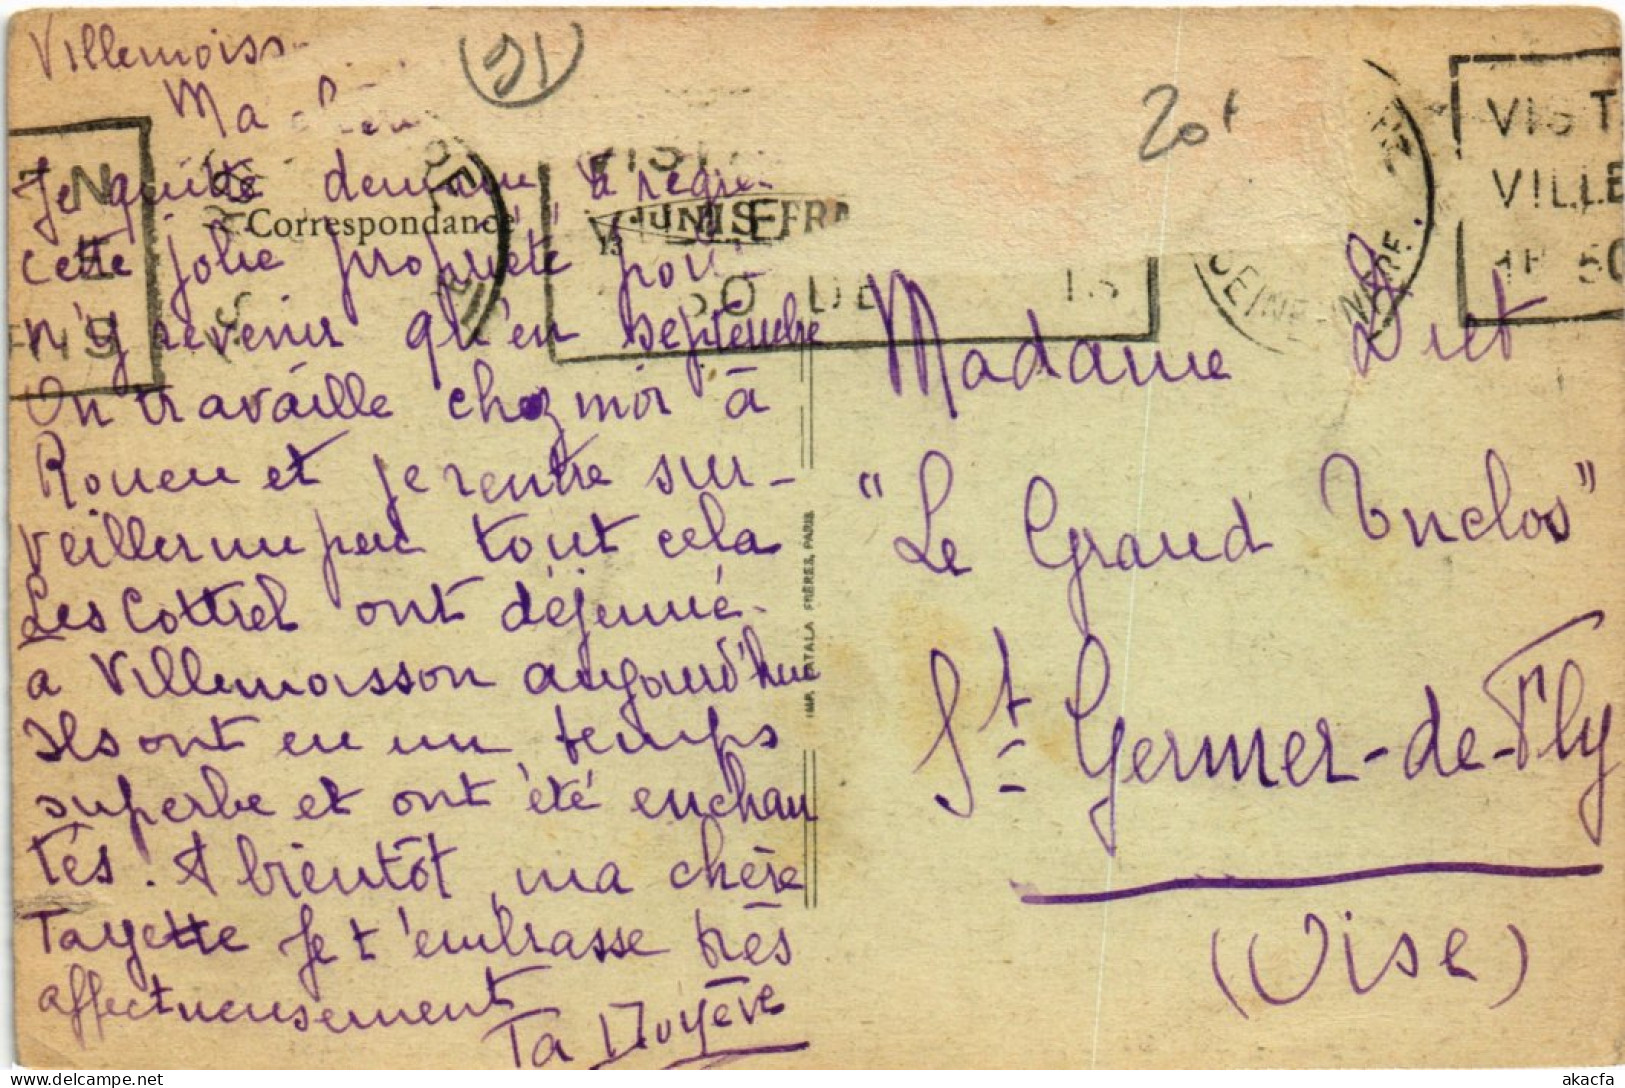 Villemoiss
Ma chère
(91)
20f
Je quitte demain à regre
Correspondance
cette jolie propriété pour
n'y revenir qu'en septembre
On travaille chez moi à
Rouen et je rentre sur-
veiller un peu tout cela
Les Cottrel ont déjeuné
à Villemoisson aujourd'hui
Ils ont eu un temps
superbe et ont été enchan
tés. A bientôt, ma chère
Tayette Je t'embrasse très
affectueusement
Ta
IMP. CATALA FRÈRES, PARIS
VISIT
VILLE
SEINE-INFRE
50 DE
Madame Diet
"Le Grand Enclos"
St Germer-de-Fly
(Oise)
akacfa